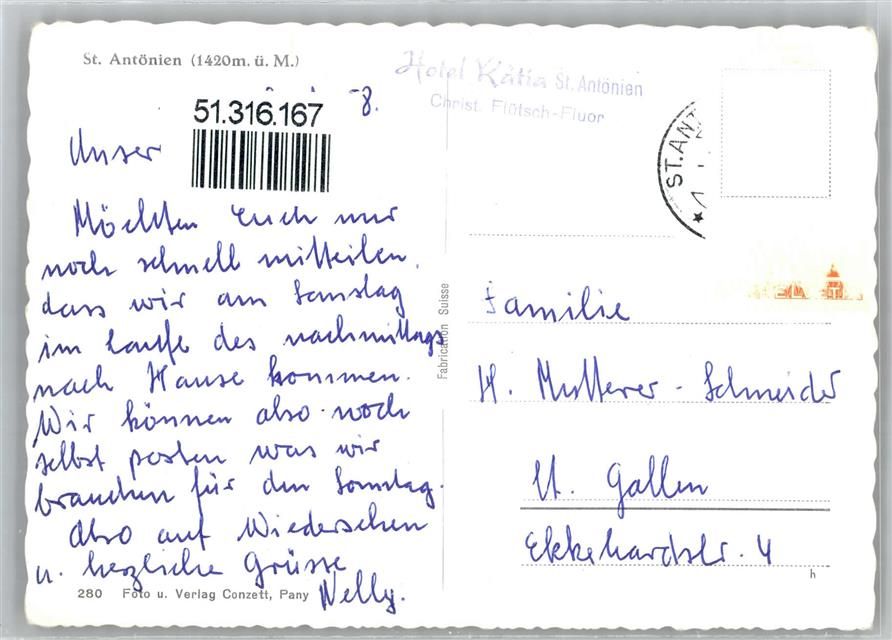 St. Antönien (1420m. ü. M.)
8.
51.316.167
Unser
Möchten Euch nur
noch schnell mitteilen,
dass wir am Samstag
im Laufe des nachmittags
nach Hause kommen.
Wir können also noch
selbst posten was wir
brauchen für den Sonntag.
Also auf Wiedersehen
u. herzliche Grüsse
Nelly.
280 Foto u. Verlag Conzett, Pany
Fabrication Suisse
Hotel Rätia St. Antönien
Christ. Flütsch-Fluor
ST. ANT
Familie
H. Mutterer - Schneider
St. Gallen
Ekkehardstr. 4
h